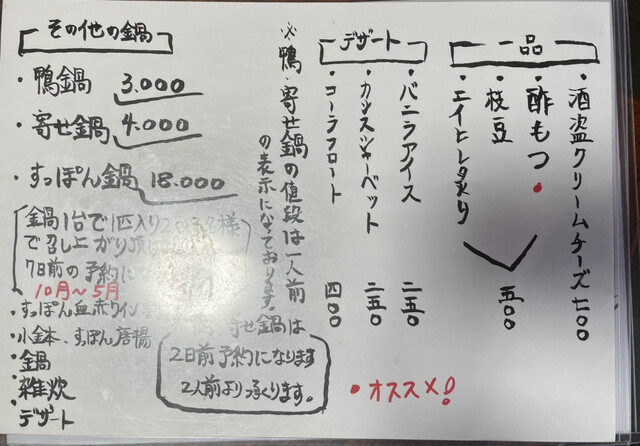 一品
酒盗クリームチーズ 七〇〇
酢もつ・
枝豆
エイヒレ炙り
五〇〇
デザート
・バニラアイス 二五〇
・カシスシャーベット 二五〇
・コーラフロート 四〇〇
・オススメ!
※鴨・寄せ鍋の値段は一人前
の表示になっております。
寄せ鍋は
2日前予約になります
2人前より承ります。
その他の鍋
・鴨鍋 3.000
・寄せ鍋 4.000
・すっぽん鍋 18.000
鍋1台で1匹入り 名様
で召し上がり頂
7日前の予約に
10月〜5月
・すっぽん血赤ワイン
・小金本、すっぽん唐揚
・鍋
・雑炊
・デザート